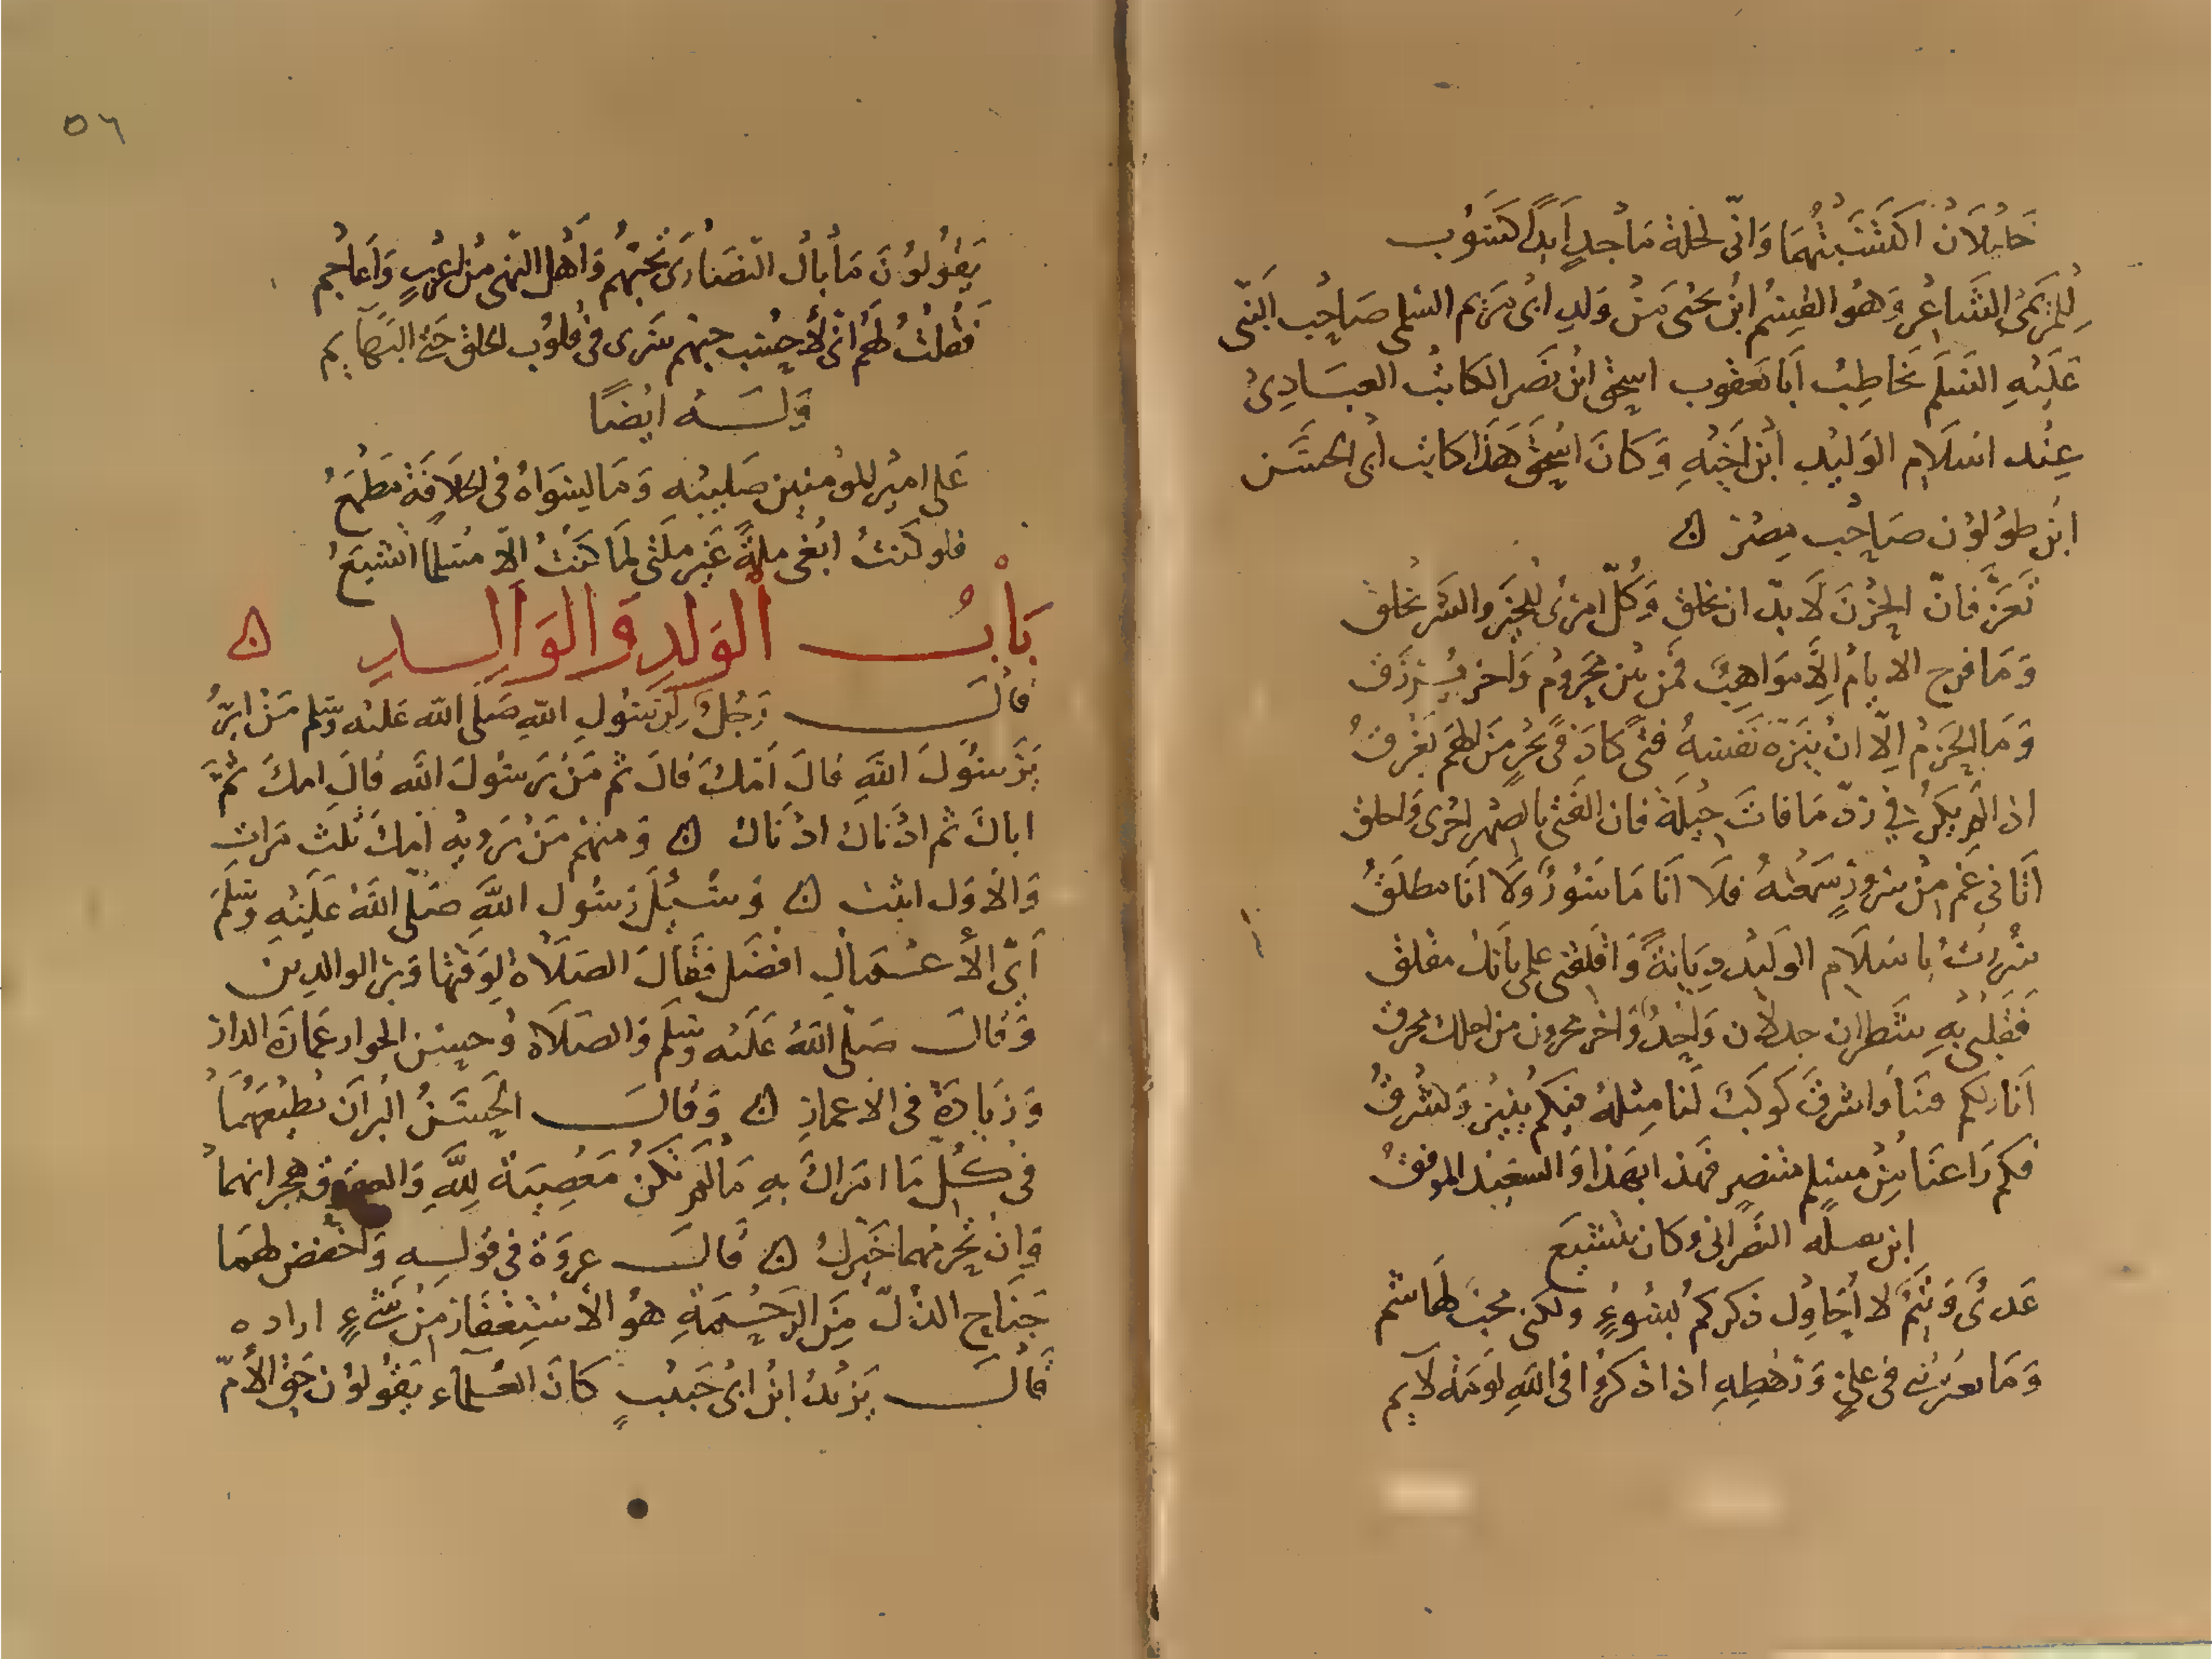 خايلان اكتسبتهما وانى لخلة ماجد ابدا كسوب
للمريمى الشاعر وهو القسم ابن يحيى من ولد ابى مريم السلمى صاحب النبى
عليه السلم يخاطب ابا يعقوب اسحق ابن نصر الكاتب العبادى
عند اسلام الوليد ابن اخيه وكان اسحق هذا كاتب ابى الحسن
ابن طولون صاحب مصر ۞
تعز فان الحزن لا بد ان يخلق وكل امرى للخير والشر يخلق
وما فرج الايام الا مواهب فمن بين محروم واخر يرزق
وما الحزم الا ان ينزه نفسه فتى كاد فى بحر من الهم يغرق
اذا لم يكن فى رد ما فات حيلة فان الفتى بالصبر احرى واخلق
انا فى غم من سرور سمعته فلا انا ماسور ولا انا مطلق
سررت باسلام الوليد ديانة واقلقنى علمى بانك مقلق
فقلبى به شطران جدلان واحد واخر محزون من اجلك محرق
انا ركم منا واشرق كوكب لنا مثله فيكم ينير ويشرق
فكم راعنا من مسلم متنصر فهذا بهذا والسعيد الموفق
ابن النصرانى وكان يتشيع
عدى وتيم لا احاول ذكركم بسوء ولكنى محب لهاشم
وما يعترينى فى على ورهطه اذا ذكروا فى الله لومة لايم
٥٦
يقولون ما بال النصارى تحبهم واهل النهى من عرب واعاجم
فقلت لهم انى لاحسب حبهم سرى فى قلوب الخلق حتى البهايم
وله ايضا
على امير المومنين صليبه وما لسواه فى الخلافة مطمع
فلو كنت ابغى ملة غير ملتى لما كنت الا مسلما اتشيع
باب الولد والوالد ۞
قال رجل لرسول الله صلى الله عليه وسلم من ابر
يرسول الله قال امك قال ثم من يرسول الله قال امك ثم
اباك ثم ادناك ادناك ۞ ومنهم من يرويه امك ثلث مرات
والاول اثبت ۞ وسيل رسول الله صلى الله عليه وسلم
اى الاعمال افضل فقال الصلاة لوقتها وبر الوالدين
وقال صلى الله عليه وسلم والصلاة وحسن الجوار عمارة الدار
وزيادة فى الاعمار ۞ وقال الحسن البر ان تطيعهما
فى كل ما امراك به ما لم تكن معصية لله والعقوق هجرانهما
وان تحرمهما خيرك ۞ قال عروة فى قوله واخفض لهما
جناح الذل من الرحمة هو الا من شىء اراده
قال يزيد ابن ابى حبيب كان العلماء يقولون حق الام